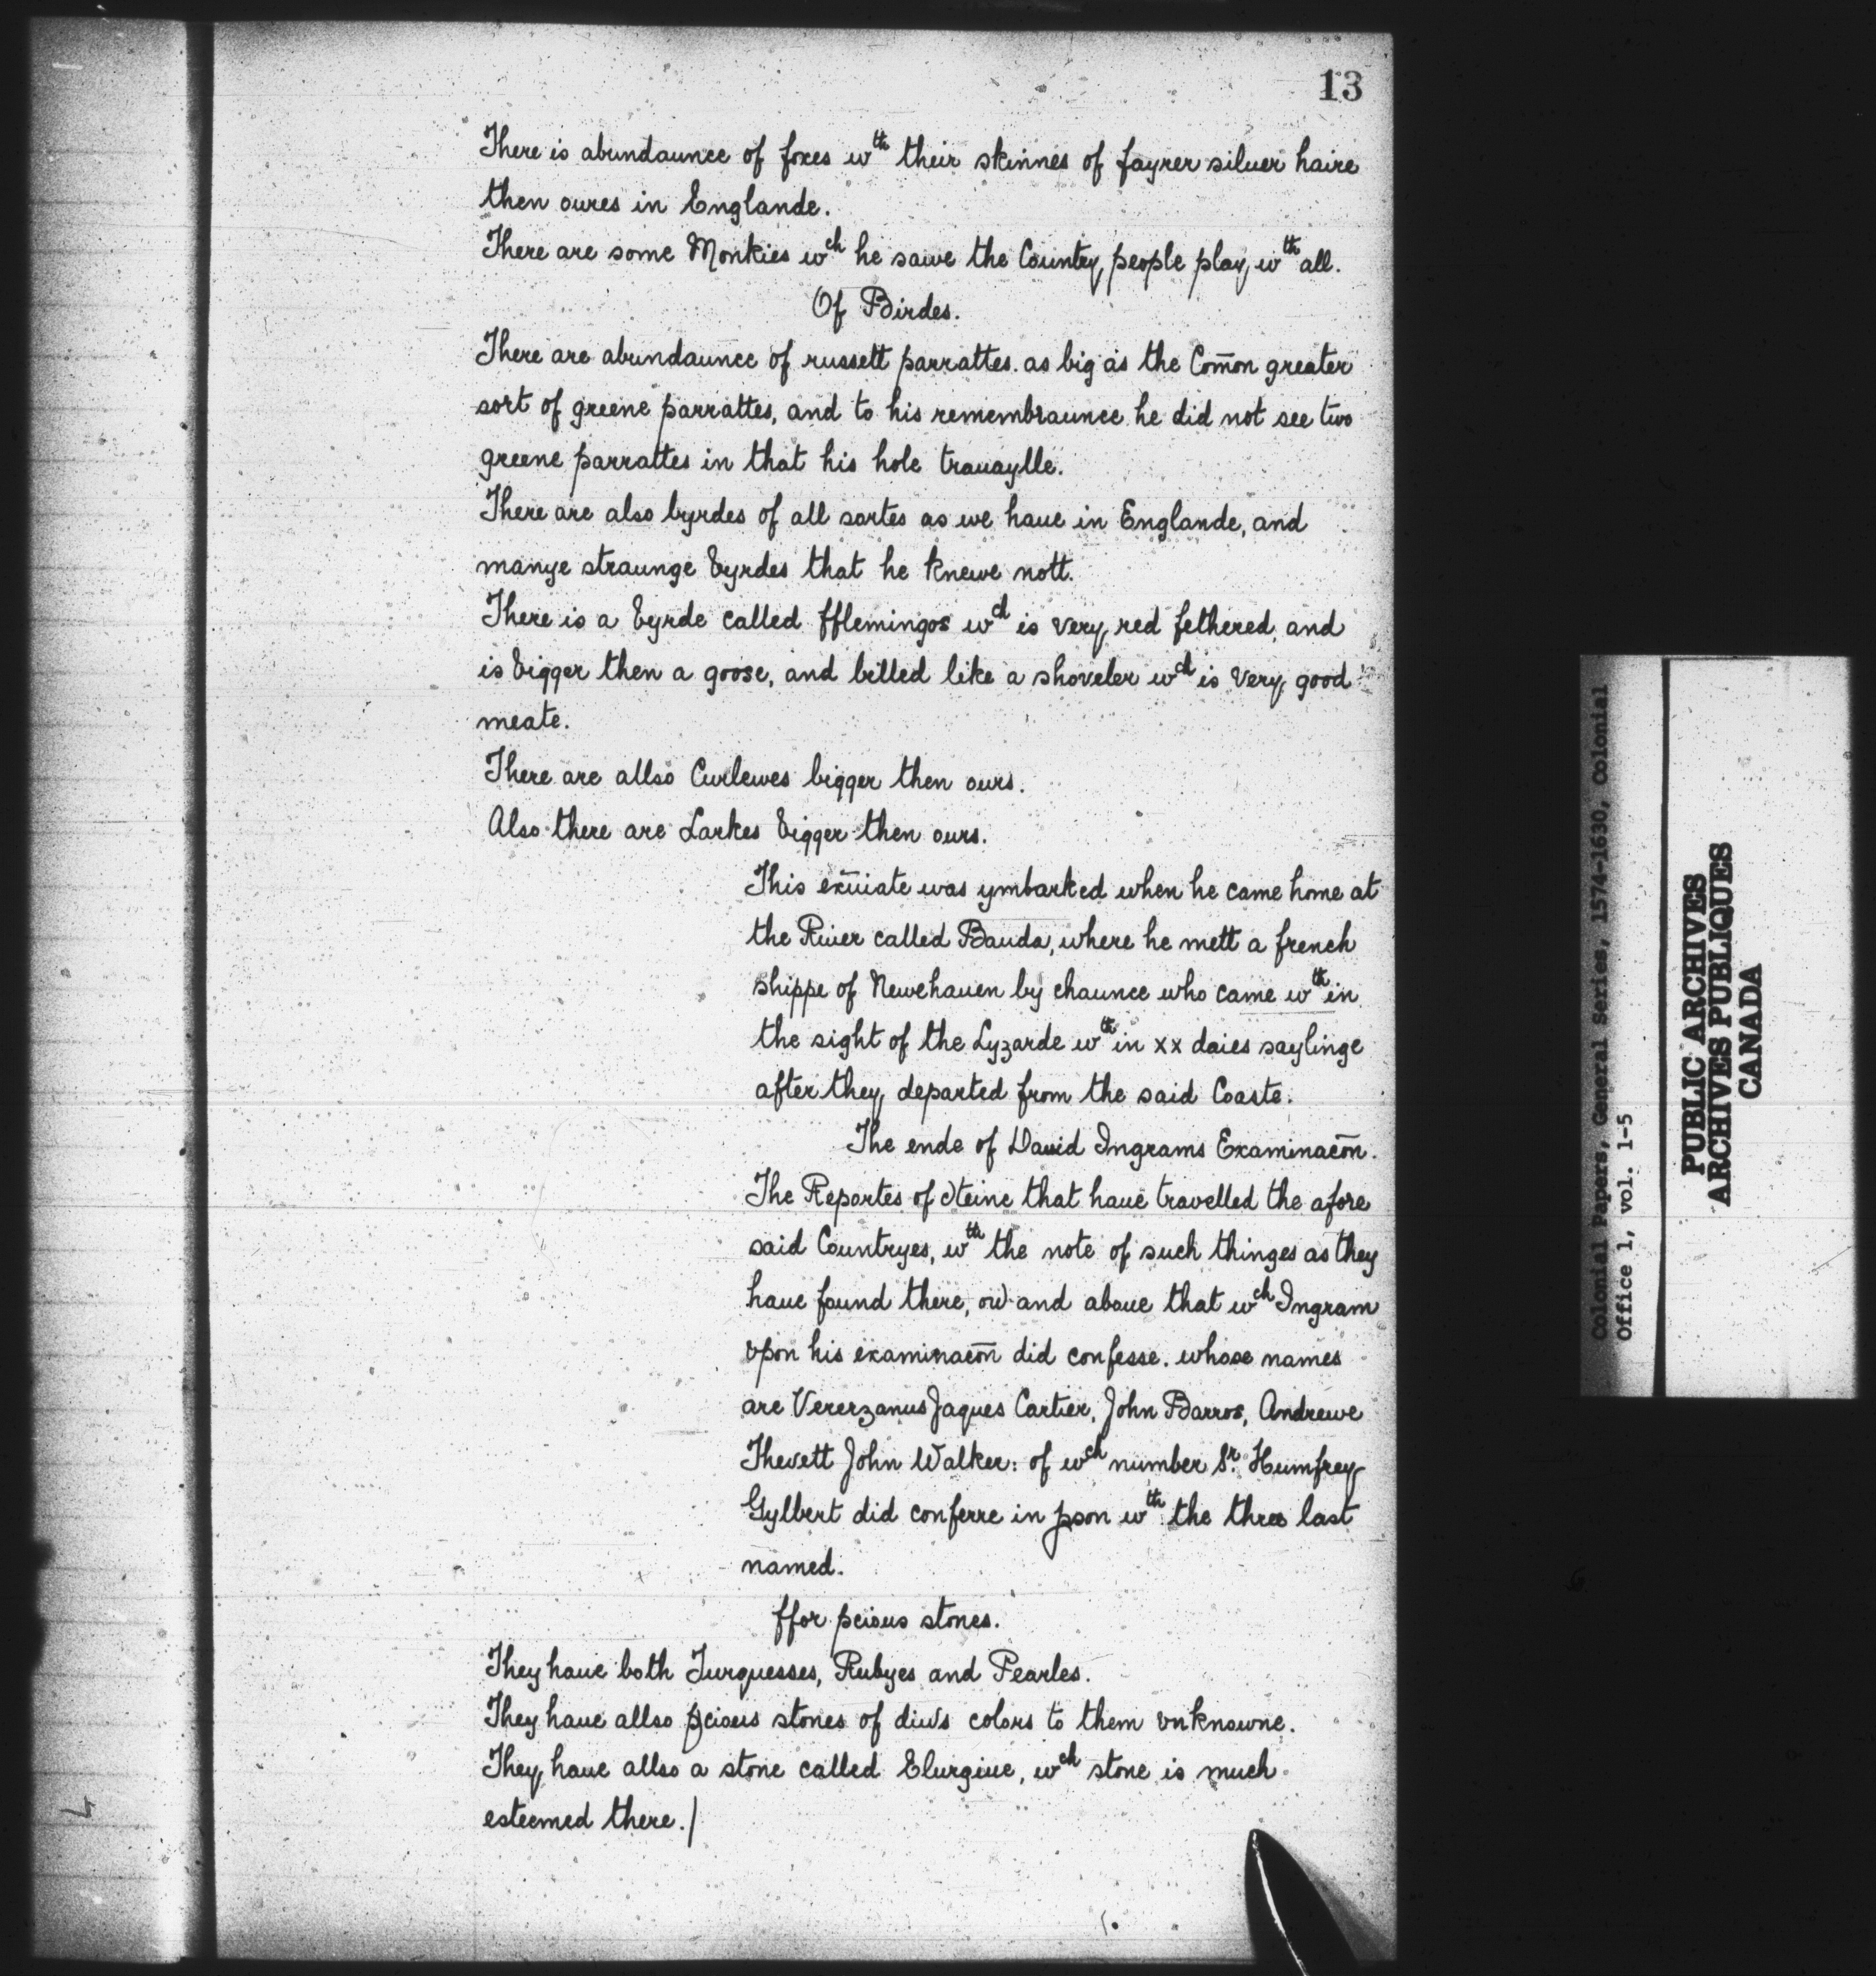 13
There is abundaunce of foxes wth their skinnes of fayrer siluer haire
then oures in Englande.
There are some Monkies wch he sawe the Country people play wth all.
Of Birdes.
There are abundaunce of russett parrattes. as big as the Com̄on greater
sort of greene parrattes, and to his remembraunce he did not see two
greene parrattes in that his hole trauaylle.
There are also byrdes of all sortes as we haue in Englande, and
manye straunge byrdes that he knewe nott.
There is a byrde called fflemingos wch is very red fethered, and
is bigger then a goose, and billed like a shoveler wch is very good
meate.
There are allso Curlewes bigger then ours.
Also there are Larkes bigger then ours.
This exīiate was ymbarked when he came home at
the Riuer called Banda, where he mett a french
shippe of Newehauen by chaunce who came wth in
the sight of the Lyzarde wth in xx daies saylinge
after they departed from the said Coaste.
The ende of Dauid Ingrams Examinacōn.
The Reportes of that haue travelled the afore
said Countryes, wth the note of such thinges as they
haue found there, and aboue that wch Ingram
vpon his examinacōn did confesse. whose names
are Vererzanus Jaques Cartier, John Barros, Andrewe
Thevett John Walker: of wch number Sr. Humfrey
Gylbert did conferre in pson wth the three last
named.
ffor pcious stones.
They haue both Turquesses, Rubyes and Pearles.
They haue allso pcious stones of diu's colors to them vnknowne.
They haue allso a stone called Elurgiue, wch stone is much
esteemed there./
Colonial Papers, General Series, 1574-1630, Colonial
Office 1, vol. 1-5
PUBLIC ARCHIVES
ARCHIVES PUBLIQUES
CANADA